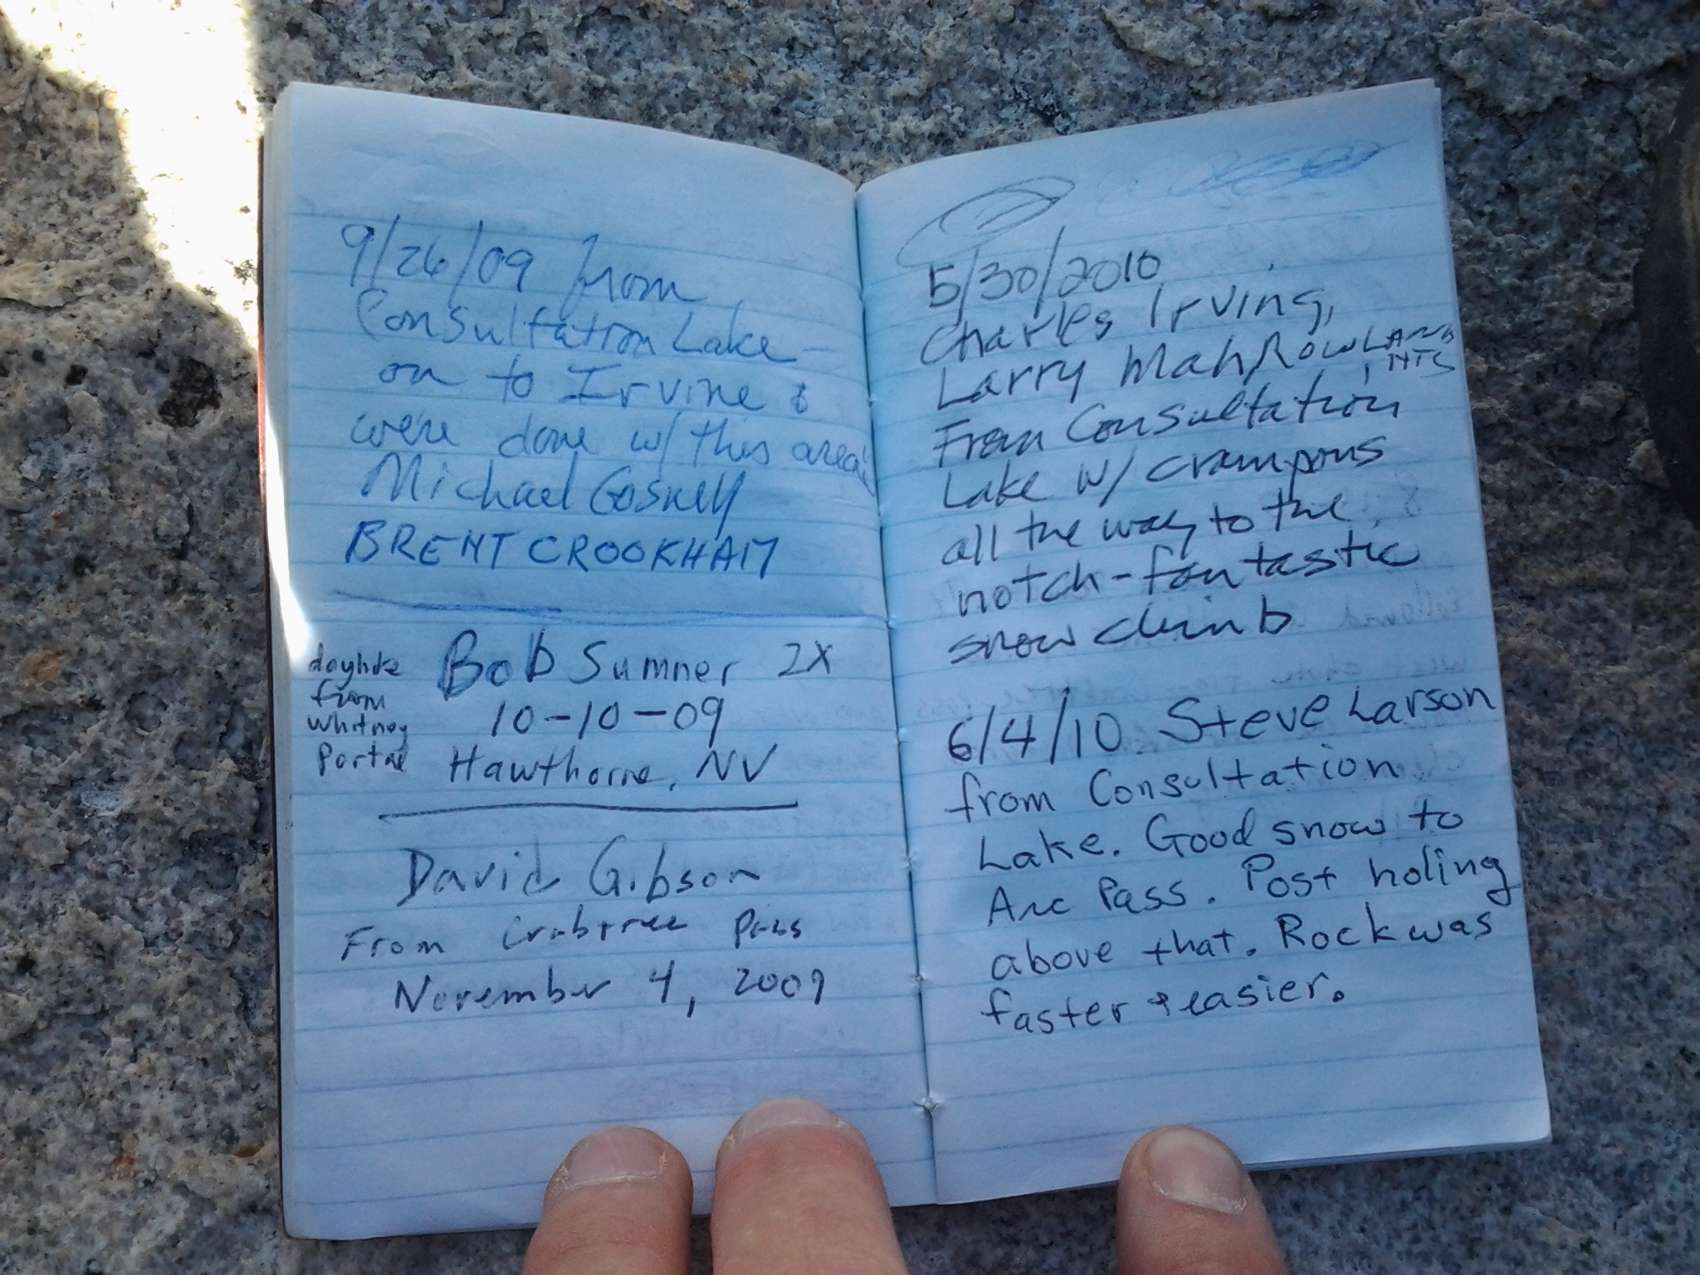 9/26/09 from
Consultation Lake -
on to Irvine &
were done w/ this area!
Michael Gosnell
BRENT CROOKHAM
dayhike
from
Whitney
Portal
Bob Sumner 2X
10-10-09
Hawthorne, NV
David Gibson
From Crabtree Pass
November 4, 2009
5/30/2010
Charles Irving,
Larry Mah,
From Consultation
Lake w/ crampons
all the way to the
notch - fantastic
snow climb
6/4/10 Steve Larson
from Consultation
Lake. Good snow to
Arc Pass. Post holing
above that. Rock was
faster & easier.